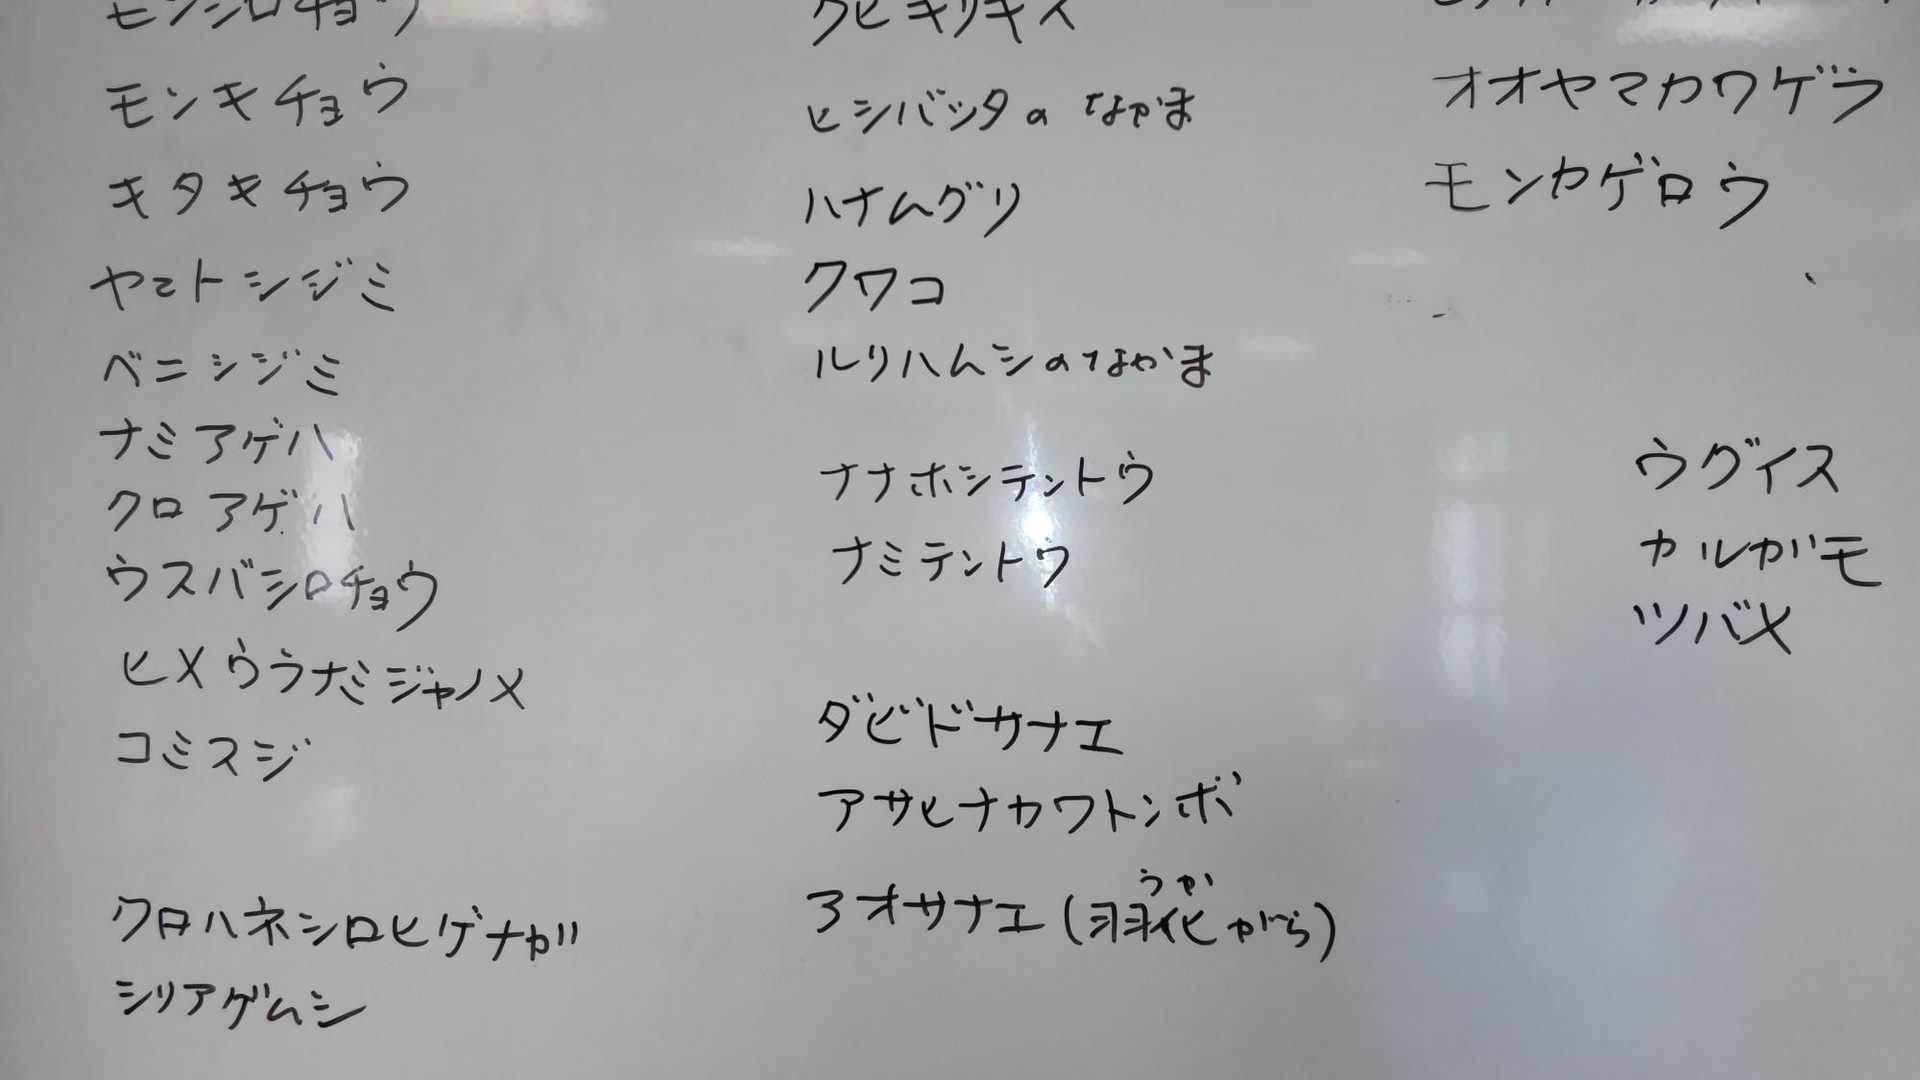 モンシロチョウ
モンキチョウ
キタキチョウ
ヤマトシジミ
ベニシジミ
ナミアゲハ
クロアゲハ
ウスバシロチョウ
ヒメウラナミジャノメ
コミスジ
クロハネシロヒゲナガ
シリアゲムシ
クビキリギス
ヒシバッタのなかま
ハナムグリ
クワコ
ルリハムシのなかま
ナナホシテントウ
ナミテントウ
ダビドサナエ
アサヒナカワトンボ
うか
アオサナエ(羽化がら)
オオヤマカワゲラ
モンカゲロウ
ウグイス
カルガモ
ツバメ